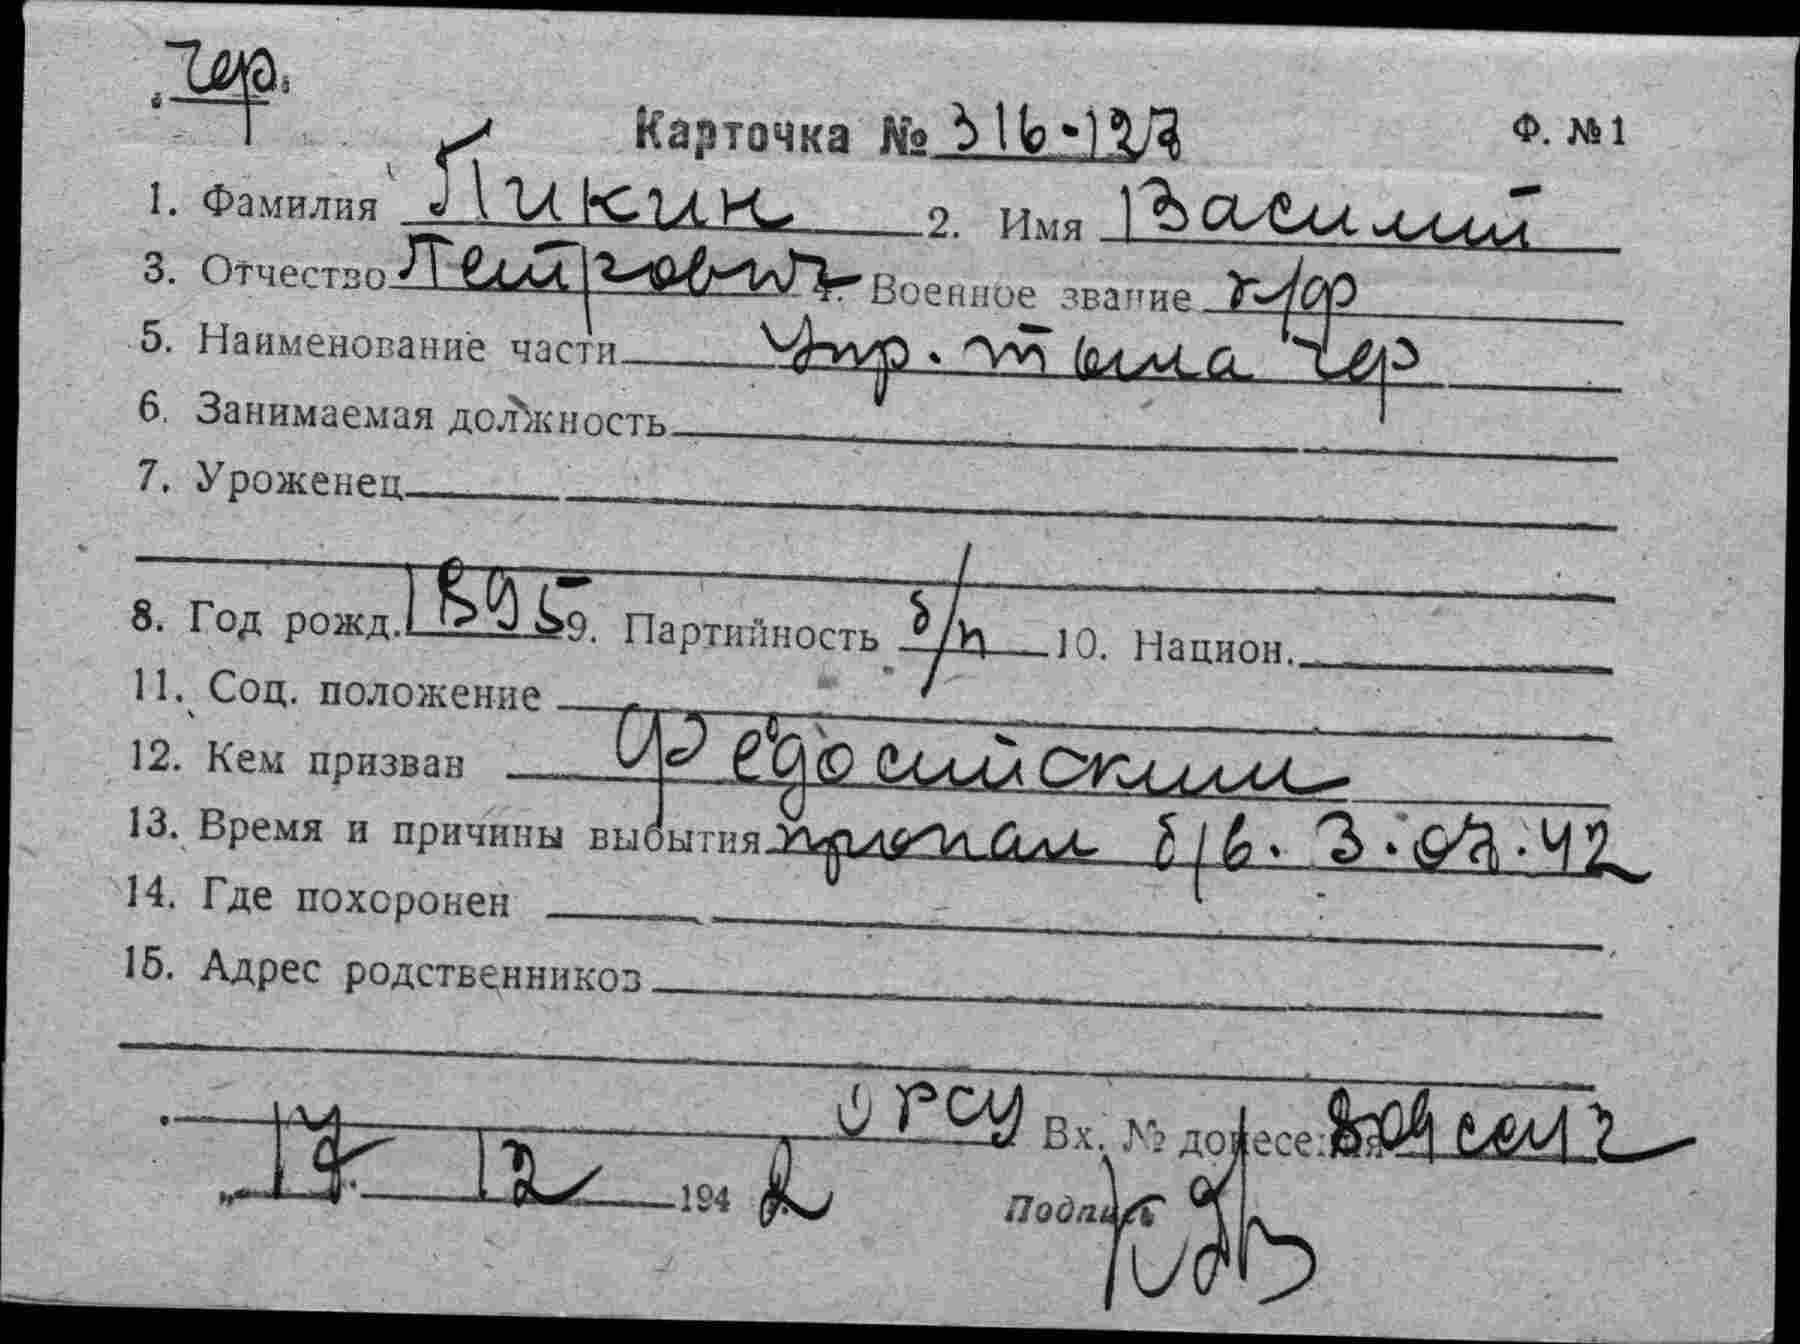 Чер.
Карточка № 316-127 Ф. №1
1. Фамилия Пикин 2. Имя Василий
3. Отчество Петрович 4. Военное звание к/ф
5. Наименование части Упр. тыла Чер
6. Занимаемая должность
7. Уроженец
8. Год рожд. 1895 9. Партийность б/п 10. Национ.
11. Соц. положение
12. Кем призван Федосийским
13. Время и причины выбытия пропал б/в. 3.07.42
14. Где похоронен
15. Адрес родственников
Вх. № донесения
12 1942
Подпись